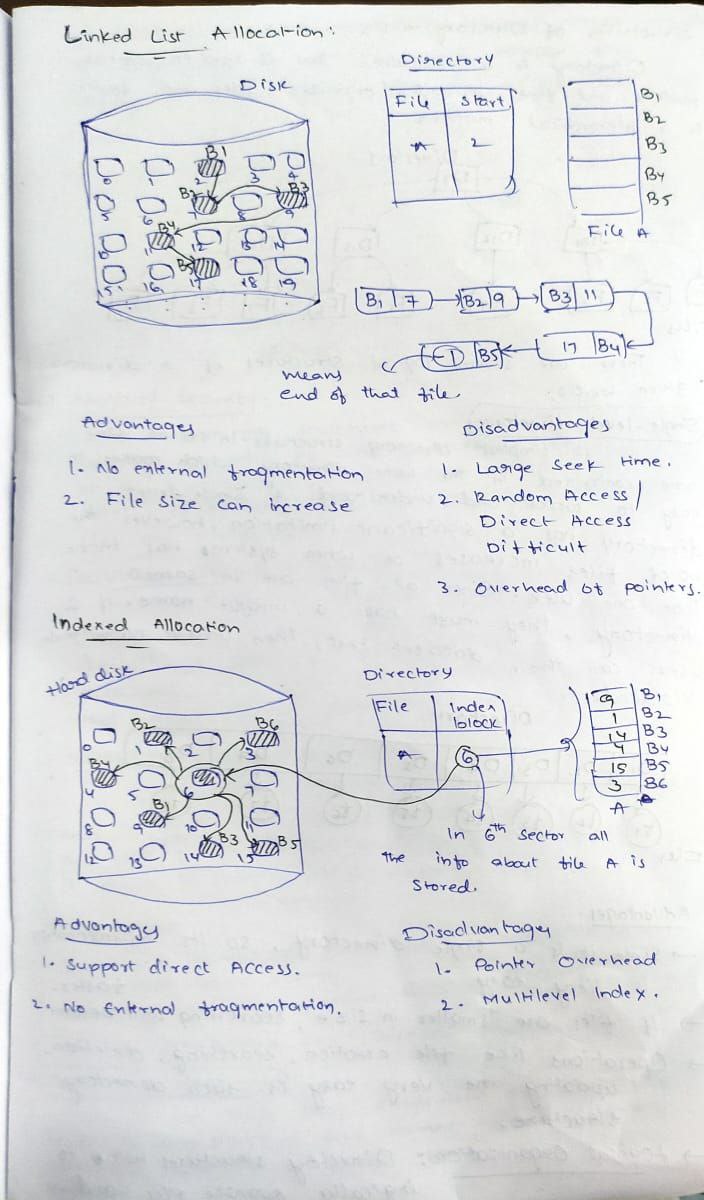 Linked List Allocation:
Disk
Directory
File Start
A 2
B1
B2
B3
B4
B5
File A
B1
0 1 2 3 4
B2 B3
5 6 7 8 9
B4
10 11 12 13 14
B5
15 16 17 18 19
B1 7
B2 9
B3 11
17 B4
-1 B5
means
end of that file.
Advantages
1. No external fragmentation
2. File size can increase
Disadvantages
1. Large Seek time.
2. Random Access /
Direct Access
Difficult
3. Overhead of pointers.
Indexed Allocation
Hard disk
Directory
File Index
block
A 6
9 B1
1 B2
14 B3
4 B4
15 B5
3 B6
A
B2 B6
0 1 2 3
B4
4 5 6 7
B1
8 9 10 11
B3 B5
12 13 14 15
In 6th Sector all
the info about file A is
Stored.
Advantages
1. Support direct Access.
2. No External fragmentation.
Disadvantages
1. Pointer Overhead
2. Multilevel Index.